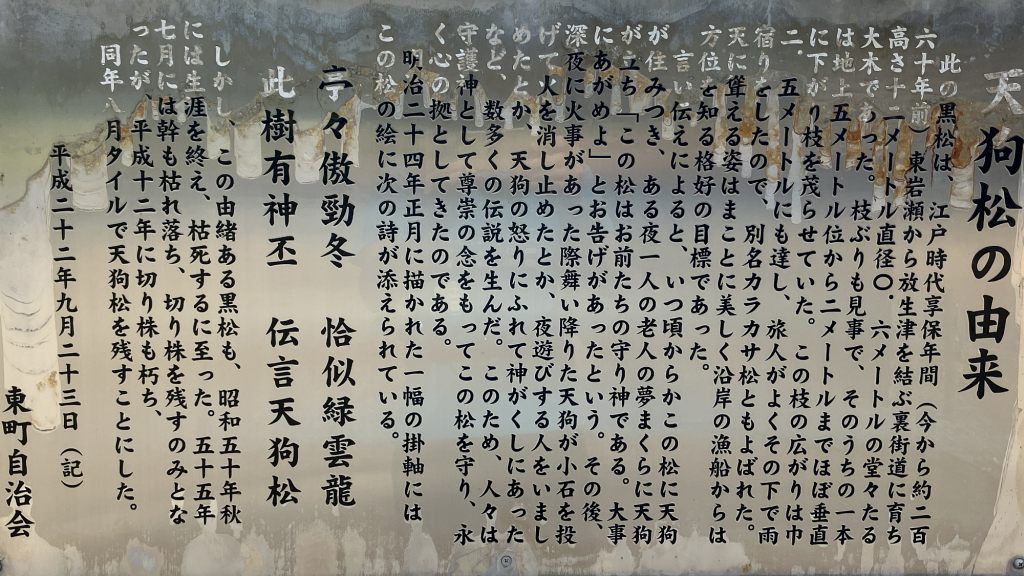 天狗松の由来
此の黒松は、江戸時代享保年間（今から約二百
六十年前）東岩瀬から放生津を結ぶ裏街道に育ち
高さ十二メートル直径〇．六メートルの堂々たる
大木であった。枝ぶりも見事で、そのうちの一本
は地上五メートル位から二メートルまでほぼ垂直
に下がり枝を茂らせていた。この枝の広がりは巾
二、五メートルにも達し、旅人がよくその下で雨
宿りをしたので、別名カラカサ松ともよばれた。
天に聳える姿はまことに美しく沿岸の漁船からは
方位を知る格好の目標であった。
言い伝えによると、いつ頃からかこの松に天狗
が住みつき、ある夜一人の老人の夢まくらに天狗
が立ち「この松はお前たちの守り神である。大事
にあがめよ」とお告げがあったという。その後、
深夜に火事があった際舞い降りた天狗が小石を投
げて火を消し止めたとか、夜遊びする人をいまし
めたとか、天狗の怒りにふれて神がくしにあった
など、数多くの伝説を生んだ。このため、人々は
守護神として尊崇の念をもってこの松を守り、永
く心の拠としてきたのである。
明治二十四年正月に描かれた一幅の掛軸には
この松の絵に次の詩が添えられている。
亭々傲勁冬　恰似緑雲龍
此樹有神丕　伝言天狗松
しかし、この由緒ある黒松も、昭和五十年秋
には生涯を終え、枯死するに至った。五十五年
七月には幹も枯れ落ち、切り株を残すのみとな
ったが、平成十二年に切り株も朽ち、
同年八月タイルで天狗松を残すことにした。
平成二十二年九月二十三日（記）
東町自治会